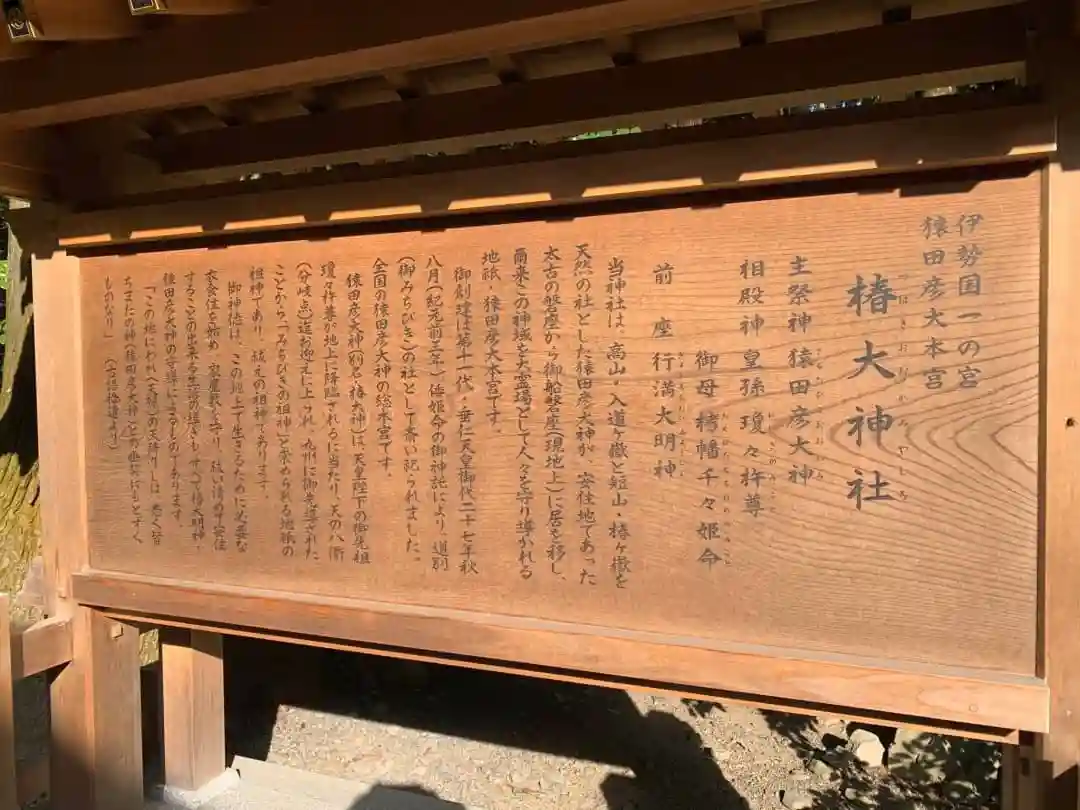 伊勢国一の宮
猿田彦大本宮
椿大神社
つばきおおかみやしろ
主祭神 猿田彦大神
相殿神 皇孫 瓊々杵尊
御母 栲幡千々姫命
前座 行満大明神
当神社は、高山・入道ヶ嶽と短山・椿ヶ嶽を
天然の社とした猿田彦大神が、安住地であった
太古の磐座から御船磐座(現地上)に居を移し、
爾来この神域を大霊場として人々を守り導かれる
地祇・猿田彦大本宮です。
御創建は第十一代・垂仁天皇御代二十七年秋
八月(紀元前三年)倭姫命の御神託により、道別
(御みちびき)の社として斎い祀られました。
全国の猿田彦大神の総本宮です。
猿田彦大神(別名・椿大神)は天皇陛下の御先祖
瓊々杵尊が地上に降臨されるに当たり、天の八衢
(分岐点)迄お迎えに上され、九州に御先導された
ことから「みちびきの祖神」と崇められる地祇の
祖神であり、祓えの祖神であります。
御神徳は、この地上で生きるために必要な
衣食住を始め、家庭を守り、祓い清めて安住
することの出来る生活の確立もすべて椿大明神・
猿田彦大神の守護によるものであります。
「この地にわれ(大神)の天降りしは、悉く皆
ちまたの神(猿田彦大神)との幽契にもとずく
ものなり」